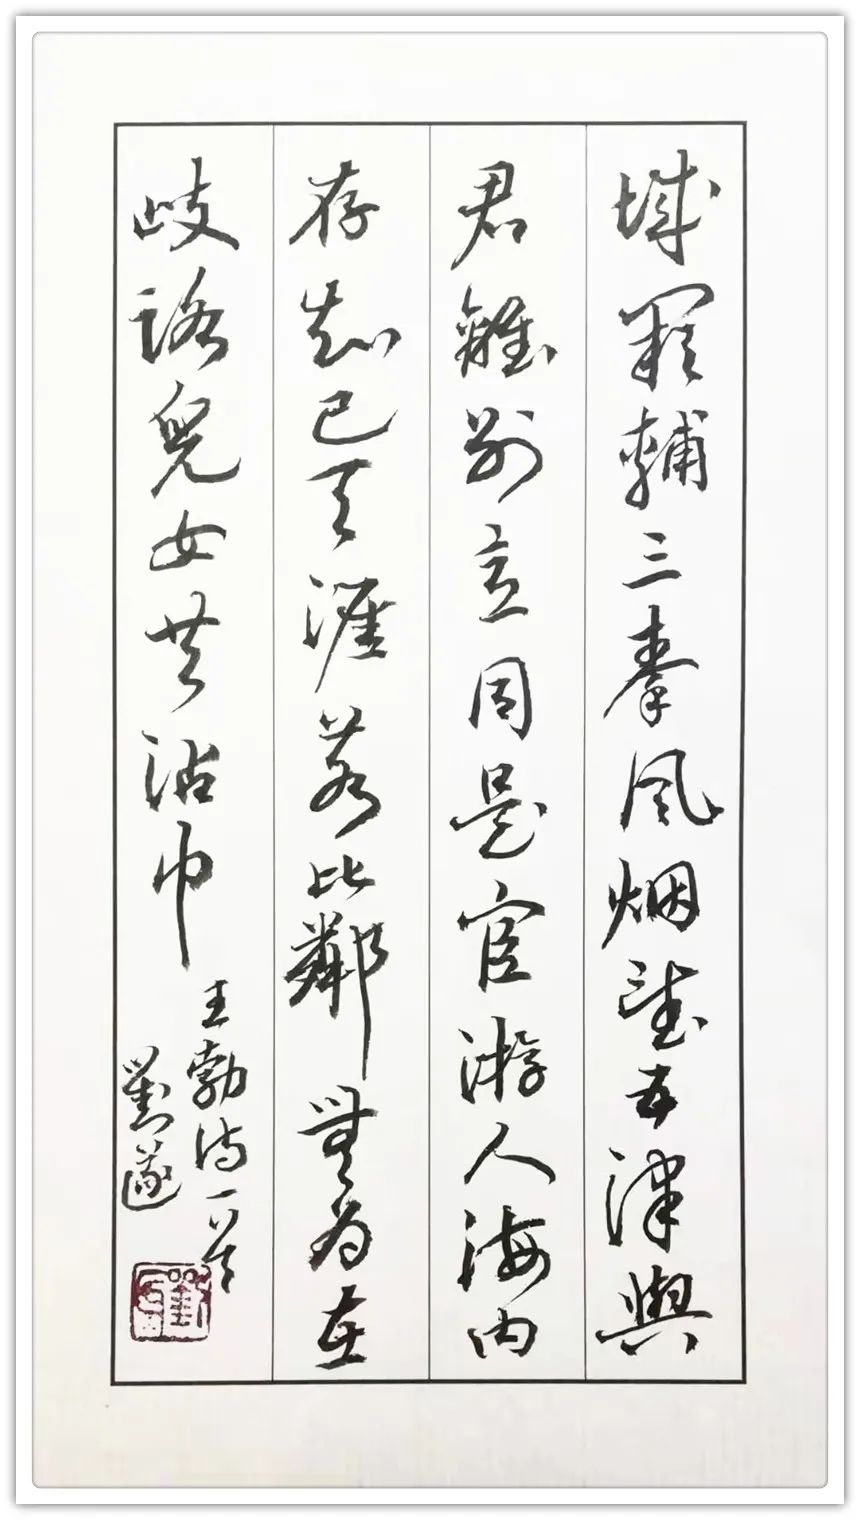 城闕輔三秦風烟望五津與
君離別意同是宦游人海内
存知己天涯若比鄰無為在
歧路兒女共沾巾
王勃诗一首
劉遂